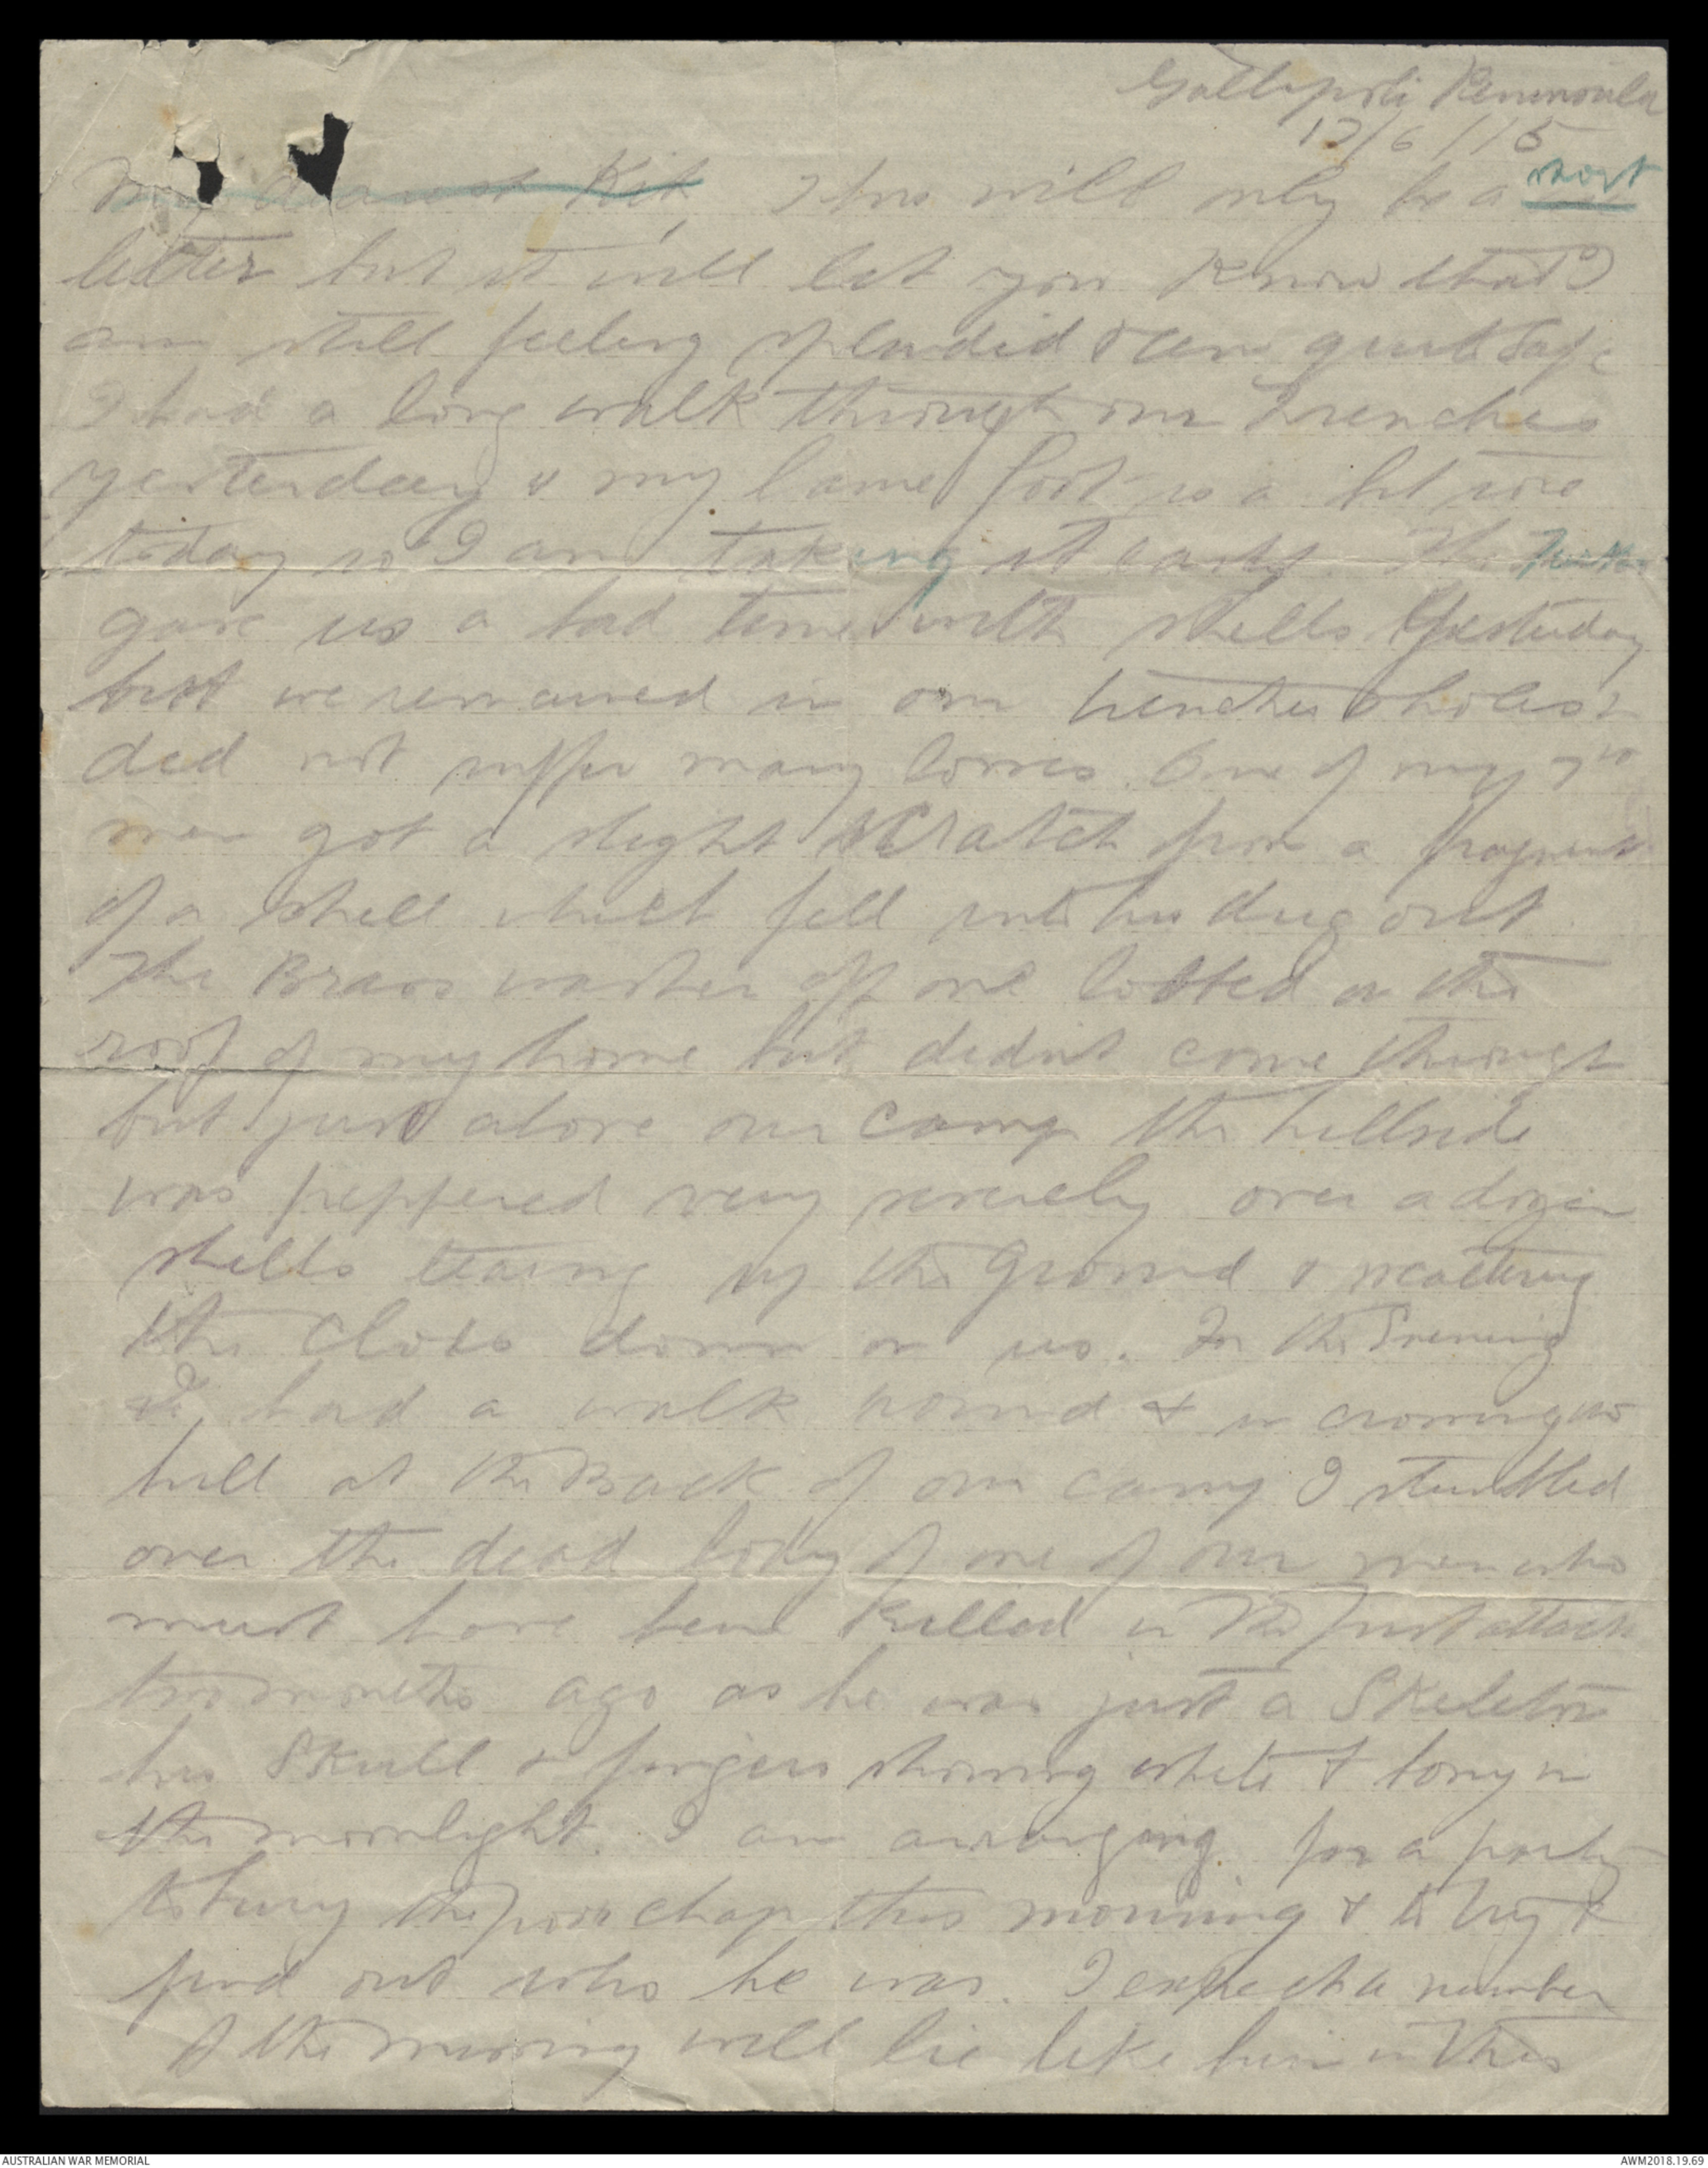 Gallipoli Peninsula
12/6/15
My dearest Kit, This will only be a short
letter but it will let you know that I
am still feeling splendid & am quite safe
I had a long walk through our Trenches
yesterday & my lame foot is a bit sore
today so I am taking it easy. The Turks
gave us a bad time with shells yesterday
but we remained in our trenches & holes &
did not suffer many losses. One of my
men got a slight scratch from a fragment
of a shell which fell into his dug out.
The Brass washer off one lobbed on the
roof of my home but didnt come through
but just above our camp the hillside
was peppered very severely over a dozen
shells tearing up the ground & scattering
the clods down on us. In the Evening
I had a walk round & in crossing
hill at the Back of our camp I stumbled
over the dead body of one of our men who
must have been killed in the first attack
two months ago as he was just a Skeleton
his Skull & fingers shining white & bony in
the moonlight. I am arranging for a party
to bury the poor chap this morning & to try &
find out who he was. I expect a number
of the missing will lie like him in this
AUSTRALIAN WAR MEMORIAL
AWM2018.19.69